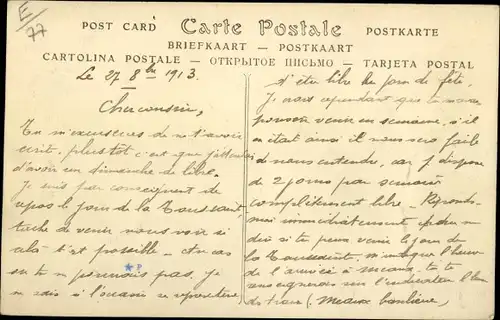 E/77
POST CARD Carte Postale POSTKARTE
BRIEFKAART — POSTKAART
CARTOLINA POSTALE — ОТКРЫТОЕ ПИСЬМО — TARJETA POSTAL
Le 27 8bre 1913.
Cher cousin,
Tu m'excuseras de ne t'avoir
écrit plus tôt c'est que j'attendais
d'avoir un dimanche de libre.
Je suis par conséquent de
repos le jour de la Toussaint,
tâche de venir nous voir si
cela t'est possible. Au cas
où tu ne pourrais pas, je
ne sais si l'occasion se représentera
d'être libre un jour de fête.
Je pense cependant que tu
pouvoir venir en semaine, s'il
en était ainsi il nous sera facile
de nous entendre, car je dispose
de 2 jours par semaine
complètement libre. Réponds-
moi immédiatement et
dis si tu peux venir le jour de
la Toussaint, l'heure
de l'arrivée à Meaux, tu te
renseigneras sur l'indicateur l'heure
des trains (Meaux banlieue)